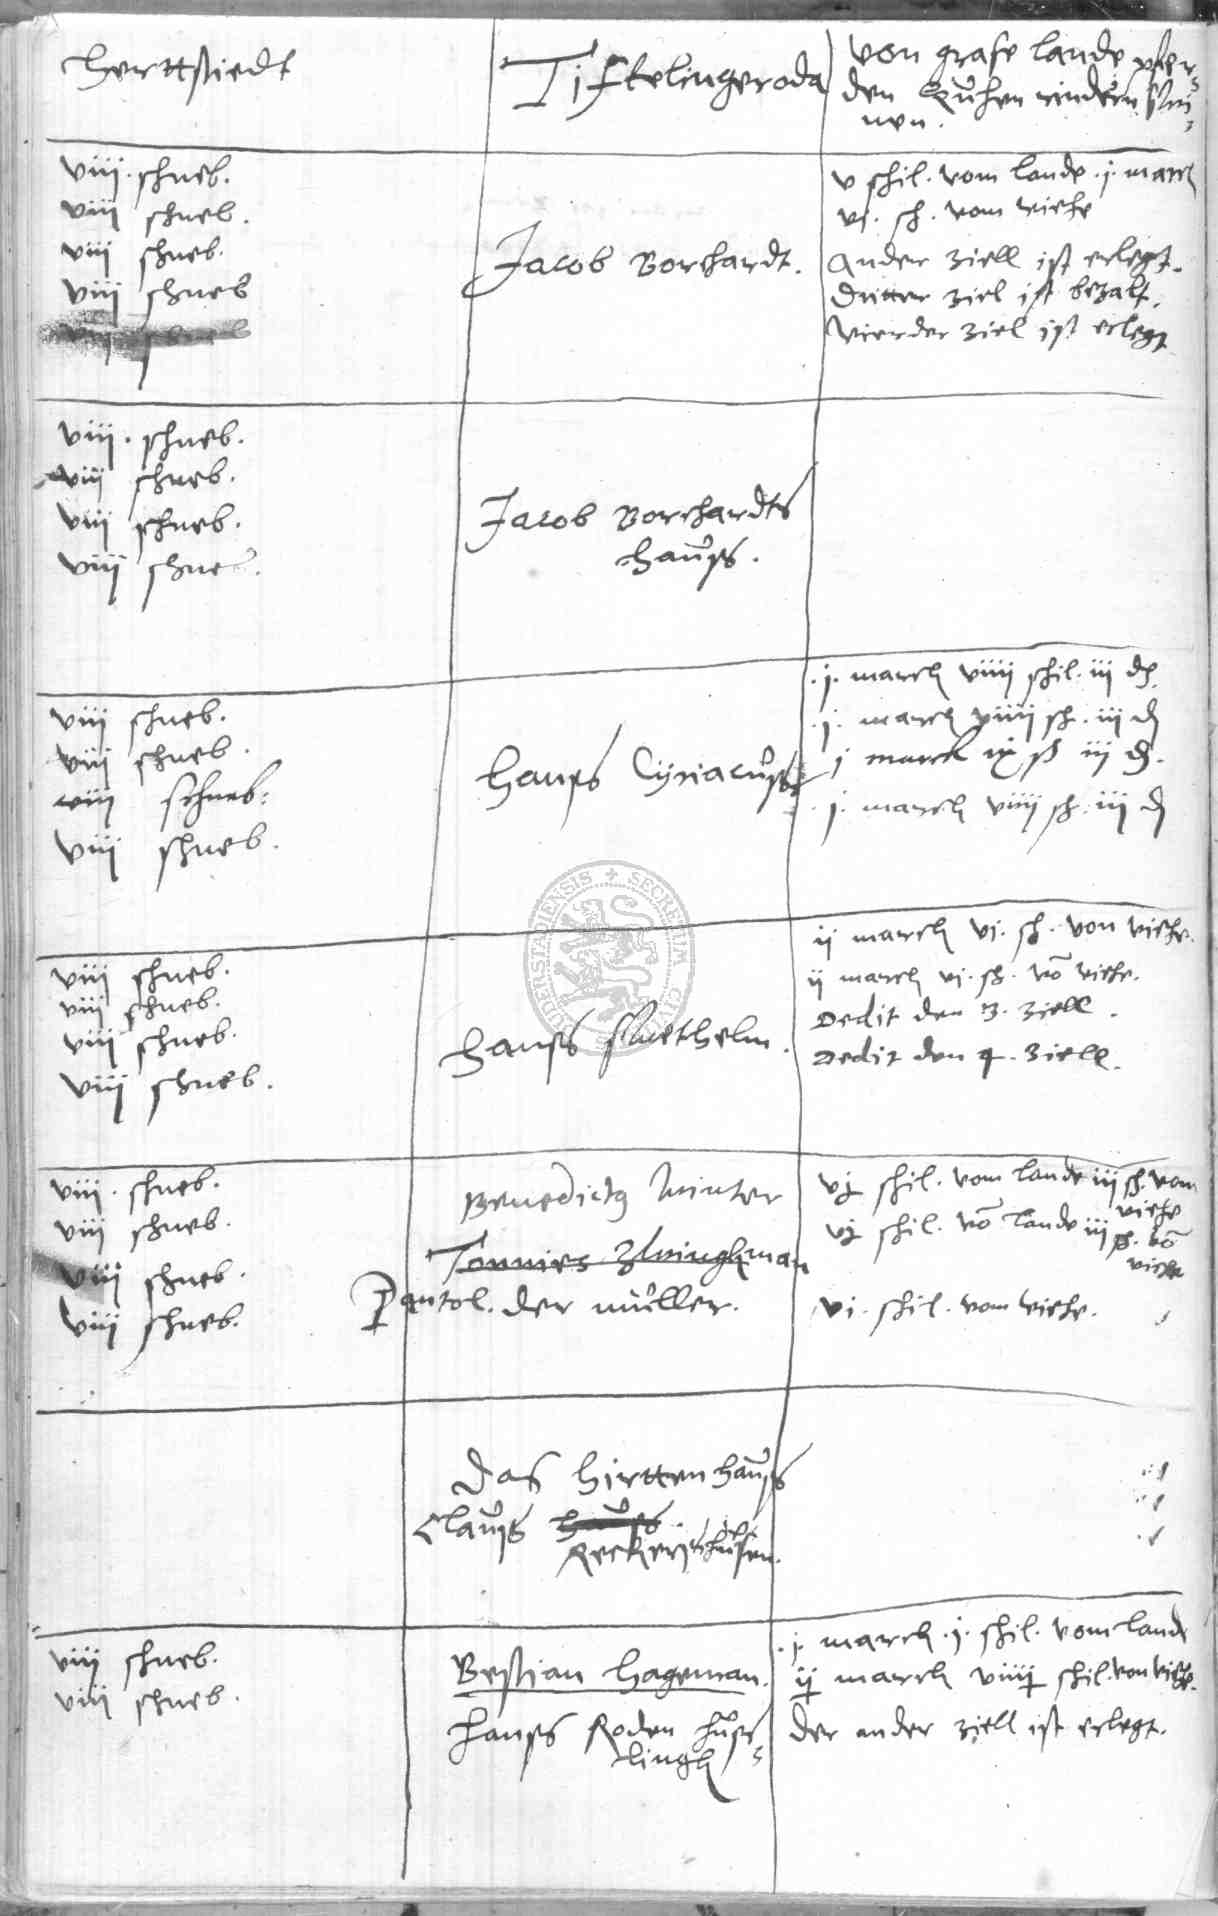 herttstiedt
Tiftelingeroda
von grase lande pfer-
den Kuhen rindern swi-
nen.
viii. schneb.
viii schneb.
viii schneb.
viii schneb
viii schneb
Jacob Borchardt.
v schil. vom lande .j. march
vi. sch. vom viehe
Ander ziell ist erlegt.
Dritter ziel ist bezalt.
Vierder ziel ist erlegt
viii. schneb.
viii schneb.
viii schneb.
viii schneb.
Jacob Borchardts
hauss.
viii schneb.
viii schneb.
viii schneb:
viii schneb.
Hanss Cyriacuss
.j. march viiii schil. iii d.
.j. march viiii sch. iii d
j march ix ß iii d.
.j. march viiii sch. iii d
SECRETUM CIVI DUDERSTADIENSIS
viii schneb.
viii schneb.
viii schneb.
viii schneb.
hanss Swethelm.
ij march vi. sch. von viehe.
ij march vi. sch. võ viehe.
Dedit den 3. ziell.
Dedit den 4. ziell.
viii. schneb.
viii schneb.
viii schneb.
viii schneb.
Benedictg Winter
Tonnies Zwinghman
Pantol. der muller.
vj schil. vom lande iii sch. vom
viehe
vj schil. võ lande iii sch. võ
viehe
vi. schil. vom viehe.
Das hirttenhauss
Clauss hauss
Reckershusen.
viii schneb.
viii schneb.
Bestian Hageman.
Hanss Roden huss-
lingh
.j. march .j. schil. vom lande
ij march viiij schil. von viehe.
der ander ziell ist erlegt.